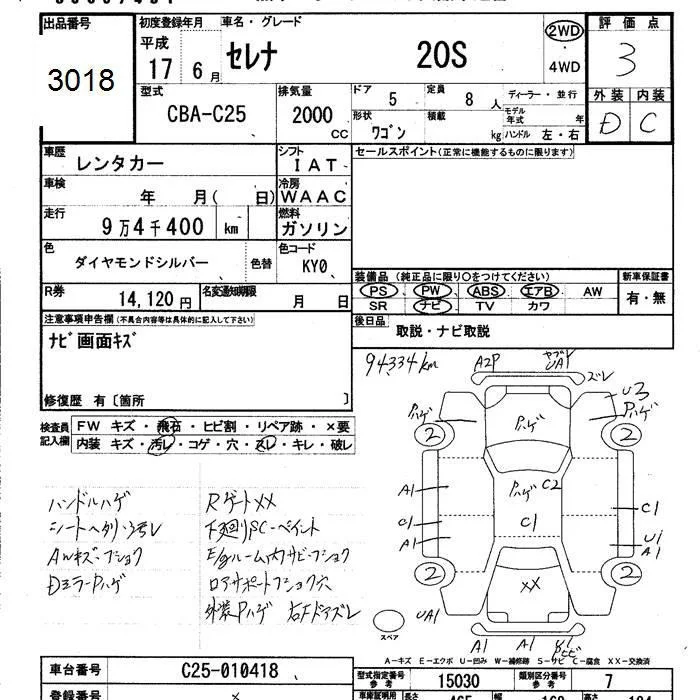 出品番号 3018
初度登録年月 平成 17 6月
車名・グレード セレナ 20S
2WD
4WD
評価点 3
外装 内装
D C
型式 CBA-C25
排気量 2000 CC
ドア 5
定員 8 人
ディーラー・並行
形状 ワゴン
積載 kg
モデル年式 年
ハンドル 左・右
車歴 レンタカー
シフト IAT
セールスポイント(正常に機能するものに限ります)
車検 年 月( 日)
冷房 WAAC
走行 9万4千400 km
燃料 ガソリン
色 ダイヤモンドシルバー 色替
色コード KY0
R券 14,120円
名変通知期限 月 日
装備品 (純正品に限り○をつけてください)
新車保証書
PS PW ABS エアB AW
有・無
SR ナビ TV カワ
後日品 取説・ナビ取説
注意事項申告欄(不具合内容等は具体的に記入して下さい)
ナビ画面キズ
修復歴 有〔箇所 〕
検査員記入欄
FW キズ・飛石・ヒビ割・リペア跡・×要
内装 キズ・汚レ・コゲ・穴・スレ・キレ・破レ
94334km
A2P
UA1
ズレ
U3
Pハゲ
Pハゲ
Pハゲ
2
2
A1
Pハゲ C2
C1
C1
C1
A1
U1
A1
2
2
XX
UA1
スペア
A1
A1
ハンドルハゲ
シートヘタリ・コゲレ
AWキズ・フショク
DミラーPハゲ
RゲートXX
下廻りSC・ペイント
E/gルーム内サビ・フショク
ロアサポートフショク穴
外装Pハゲ 右Fドアズレ
A-キズ E-エクボ U-凹み W-補修跡 S-サビ C-腐食 XX-交換済
車台番号 C25-010418
型式指定番号 参考 15030
類別区分番号 参考 7
登録番号